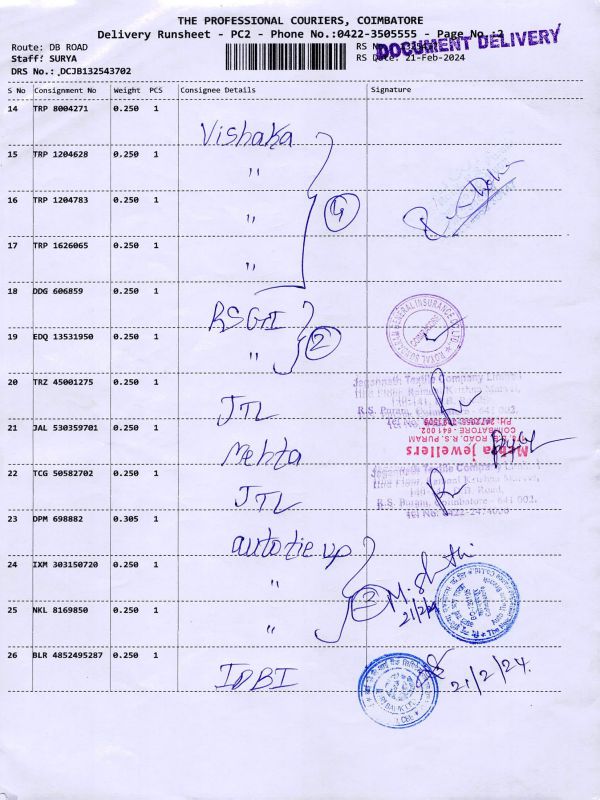 THE PROFESSIONAL COURIERS, COIMBATORE
Delivery Runsheet - PC2 - Phone No.:0422-3505555 - Page No.:2
Route: DB ROAD
DOCUMENT DELIVERY
Staff: SURYA
RS Date: 21-Feb-2024
DRS No.: DCJB132543702
S No Consignment No Weight PCS Consignee Details Signature
14 TRP 8004271 0.250 1 Vishaka
15 TRP 1204628 0.250 1 "
16 TRP 1204783 0.250 1 " 4
17 TRP 1626065 0.250 1 "
18 DDG 606859 0.250 1 RSGI
19 EDQ 13531950 0.250 1 " 2
20 TRZ 45001275 0.250 1 JTL
Jagannath Textile Company Limited
R.S. Puram, Coimbatore - 641 002.
21 JAL 530359701 0.250 1 Mehta
COIMBATORE - 641 002
ROAD, R.S. PURAM
Mehta jewellers
22 TCG 50582702 0.250 1 JTL
Jagannath Textile Company Limited
R.S. Puram, Coimbatore - 641 002.
Tel No: 0422-2474056
23 DPM 698882 0.305 1 autotie up
24 IXM 303150720 0.250 1 "
25 NKL 8169850 0.250 1 " 3
21/2/24
26 BLR 4852495287 0.250 1 IDBI
21/2/24.